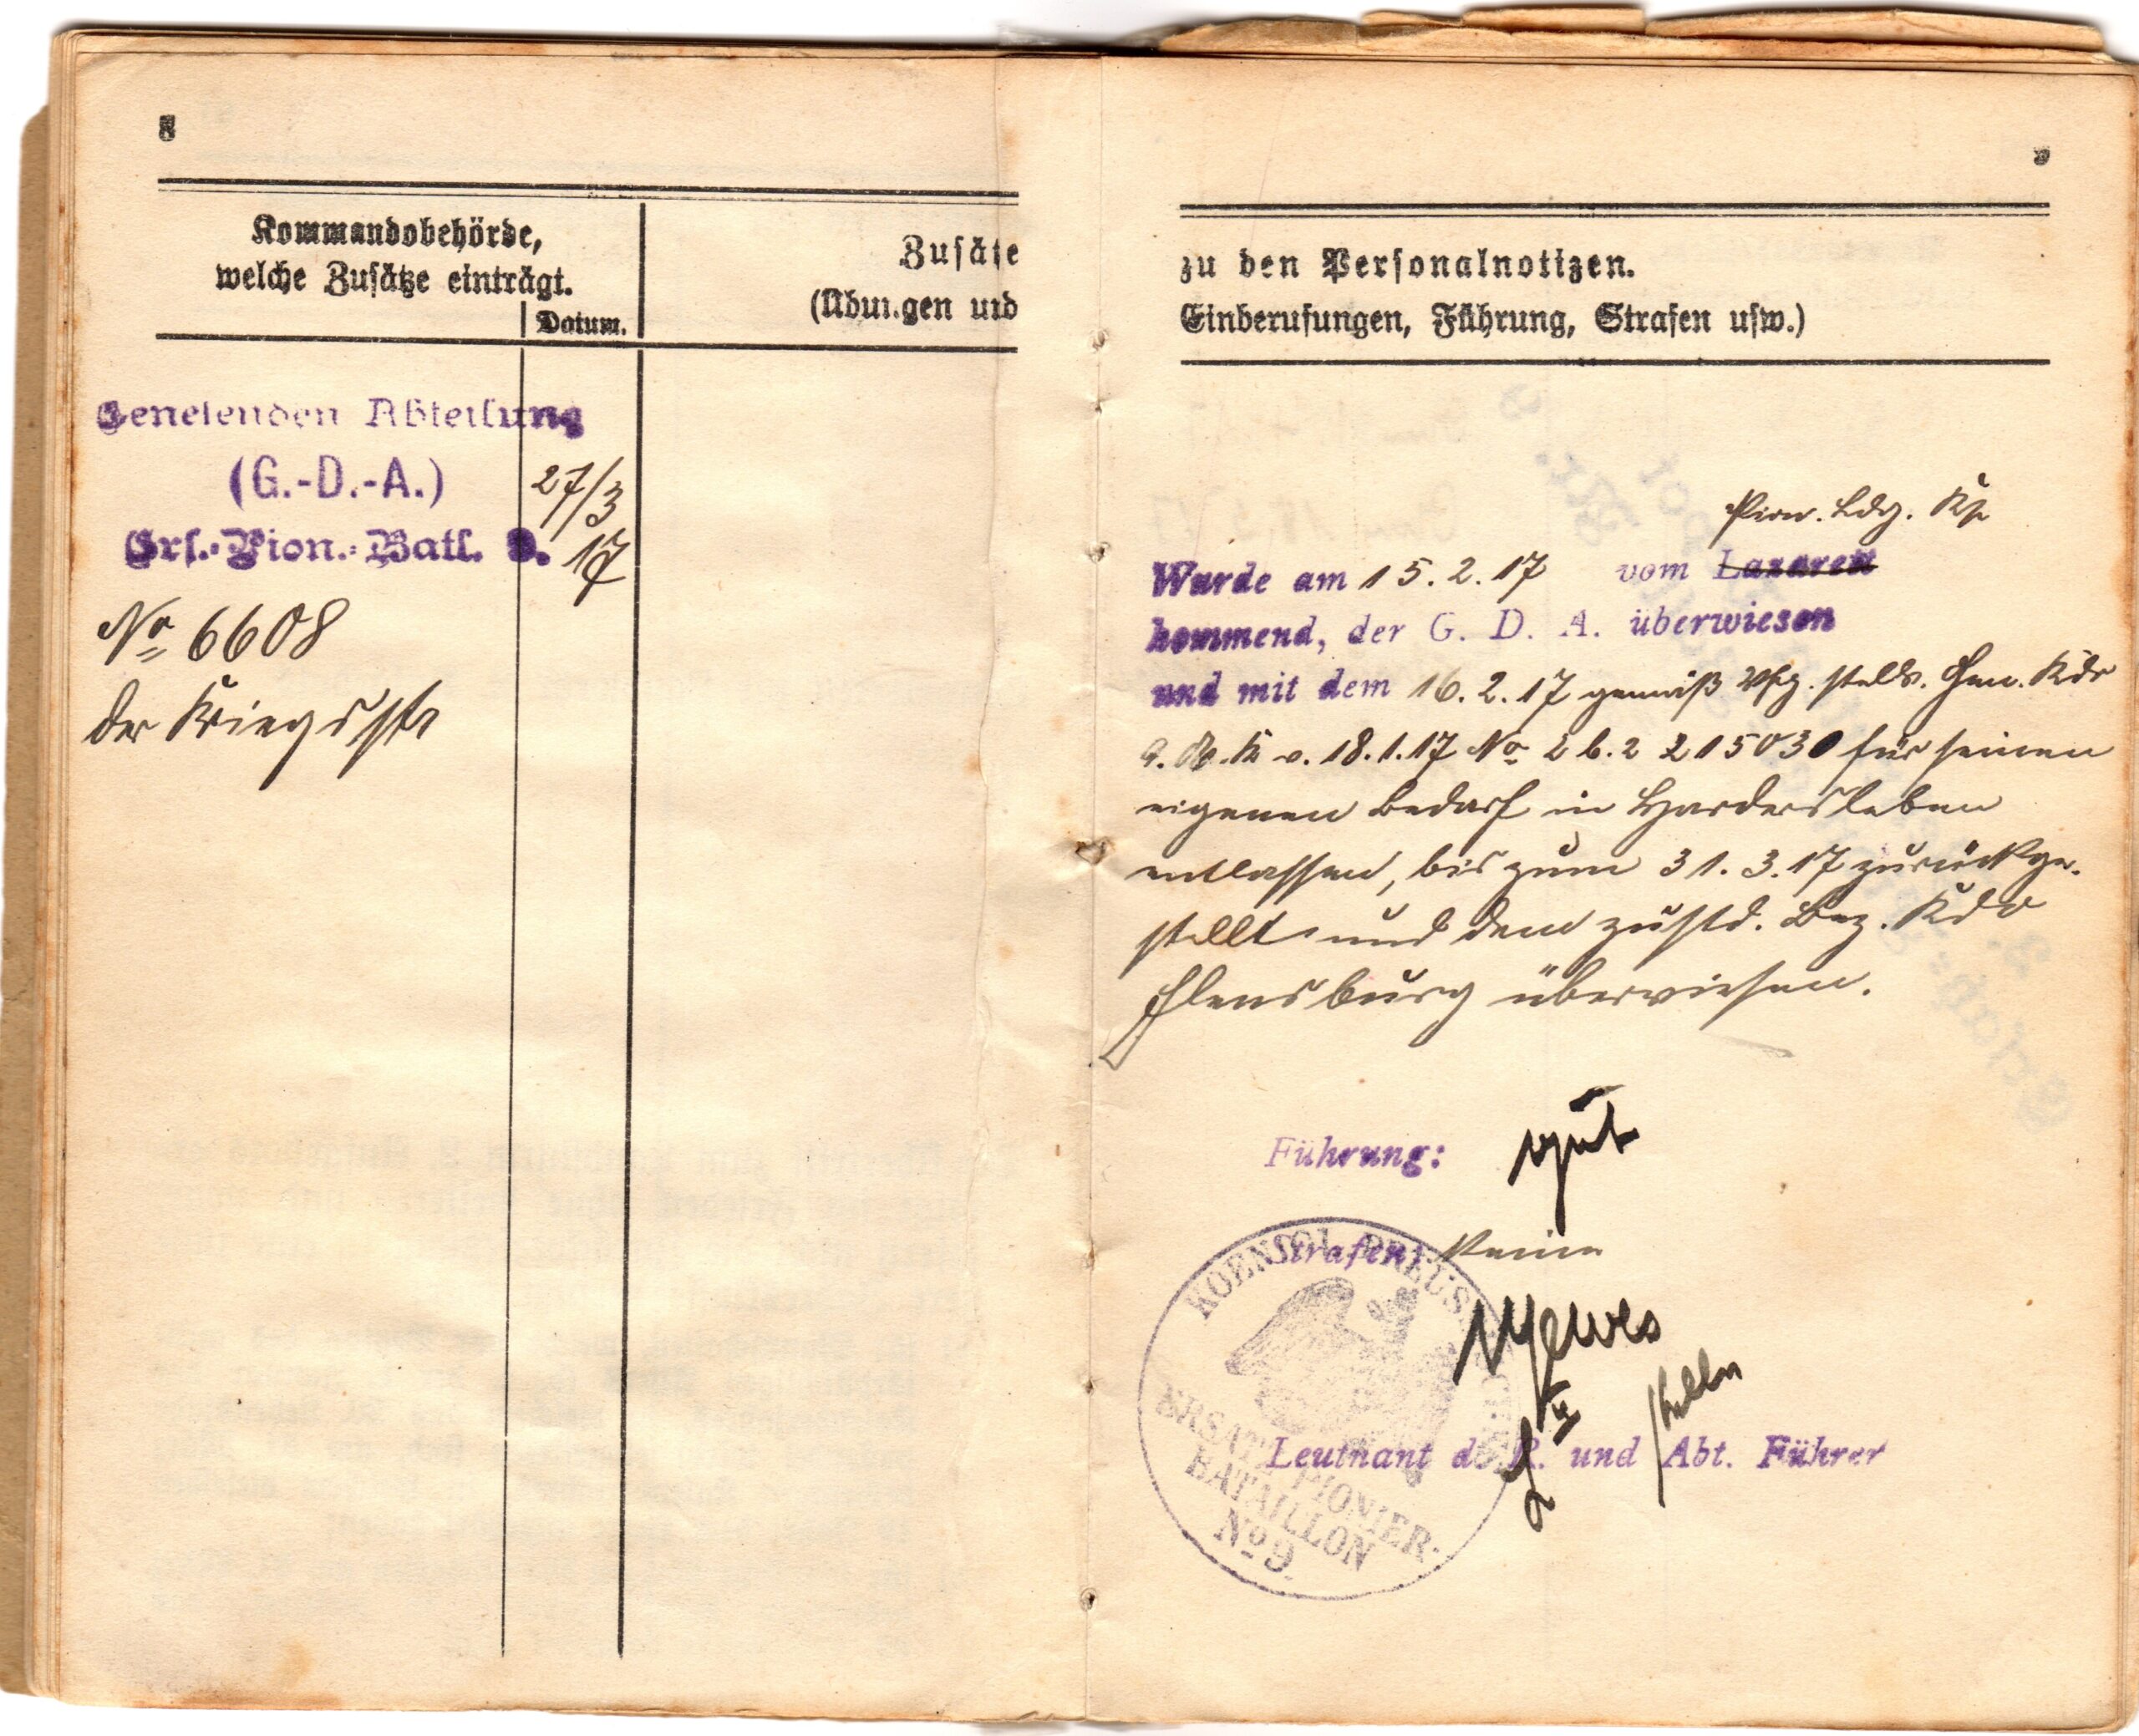 8
Kommandobehörde,
welche Zusätze einträgt.
Datum.
Zusätze
(Übungen und
Genesenden Abteilung
(G.-D.-A.)
Ers.-Pion.-Batl. 9.
27/3
17
No 6608
der Kriegsstr
9
zu den Personalnotizen.
Einberufungen, Führung, Strafen usw.)
Pion. Ldg. Kp
Wurde am 15.2.17 vom Lazarett
kommend, der G. D. A. überwiesen
und mit dem 16.2.17 gemäß Vfg. stellv. Gen. Kdo
v. 18.1.17 No 215030 für seinen
eigenen Bedarf in Hardersleben
entlassen, bis zum 31.3.17 zurückge-
stellt und dem zustd. Bez. Kdo
Flensburg überwiesen.
Führung: gut
Strafen: Keine
KOENIGL. PREUSS.
ERSATZ PIONIER-
BATAILLON
No 9.
Leutnant d. R. und Abt. Führer